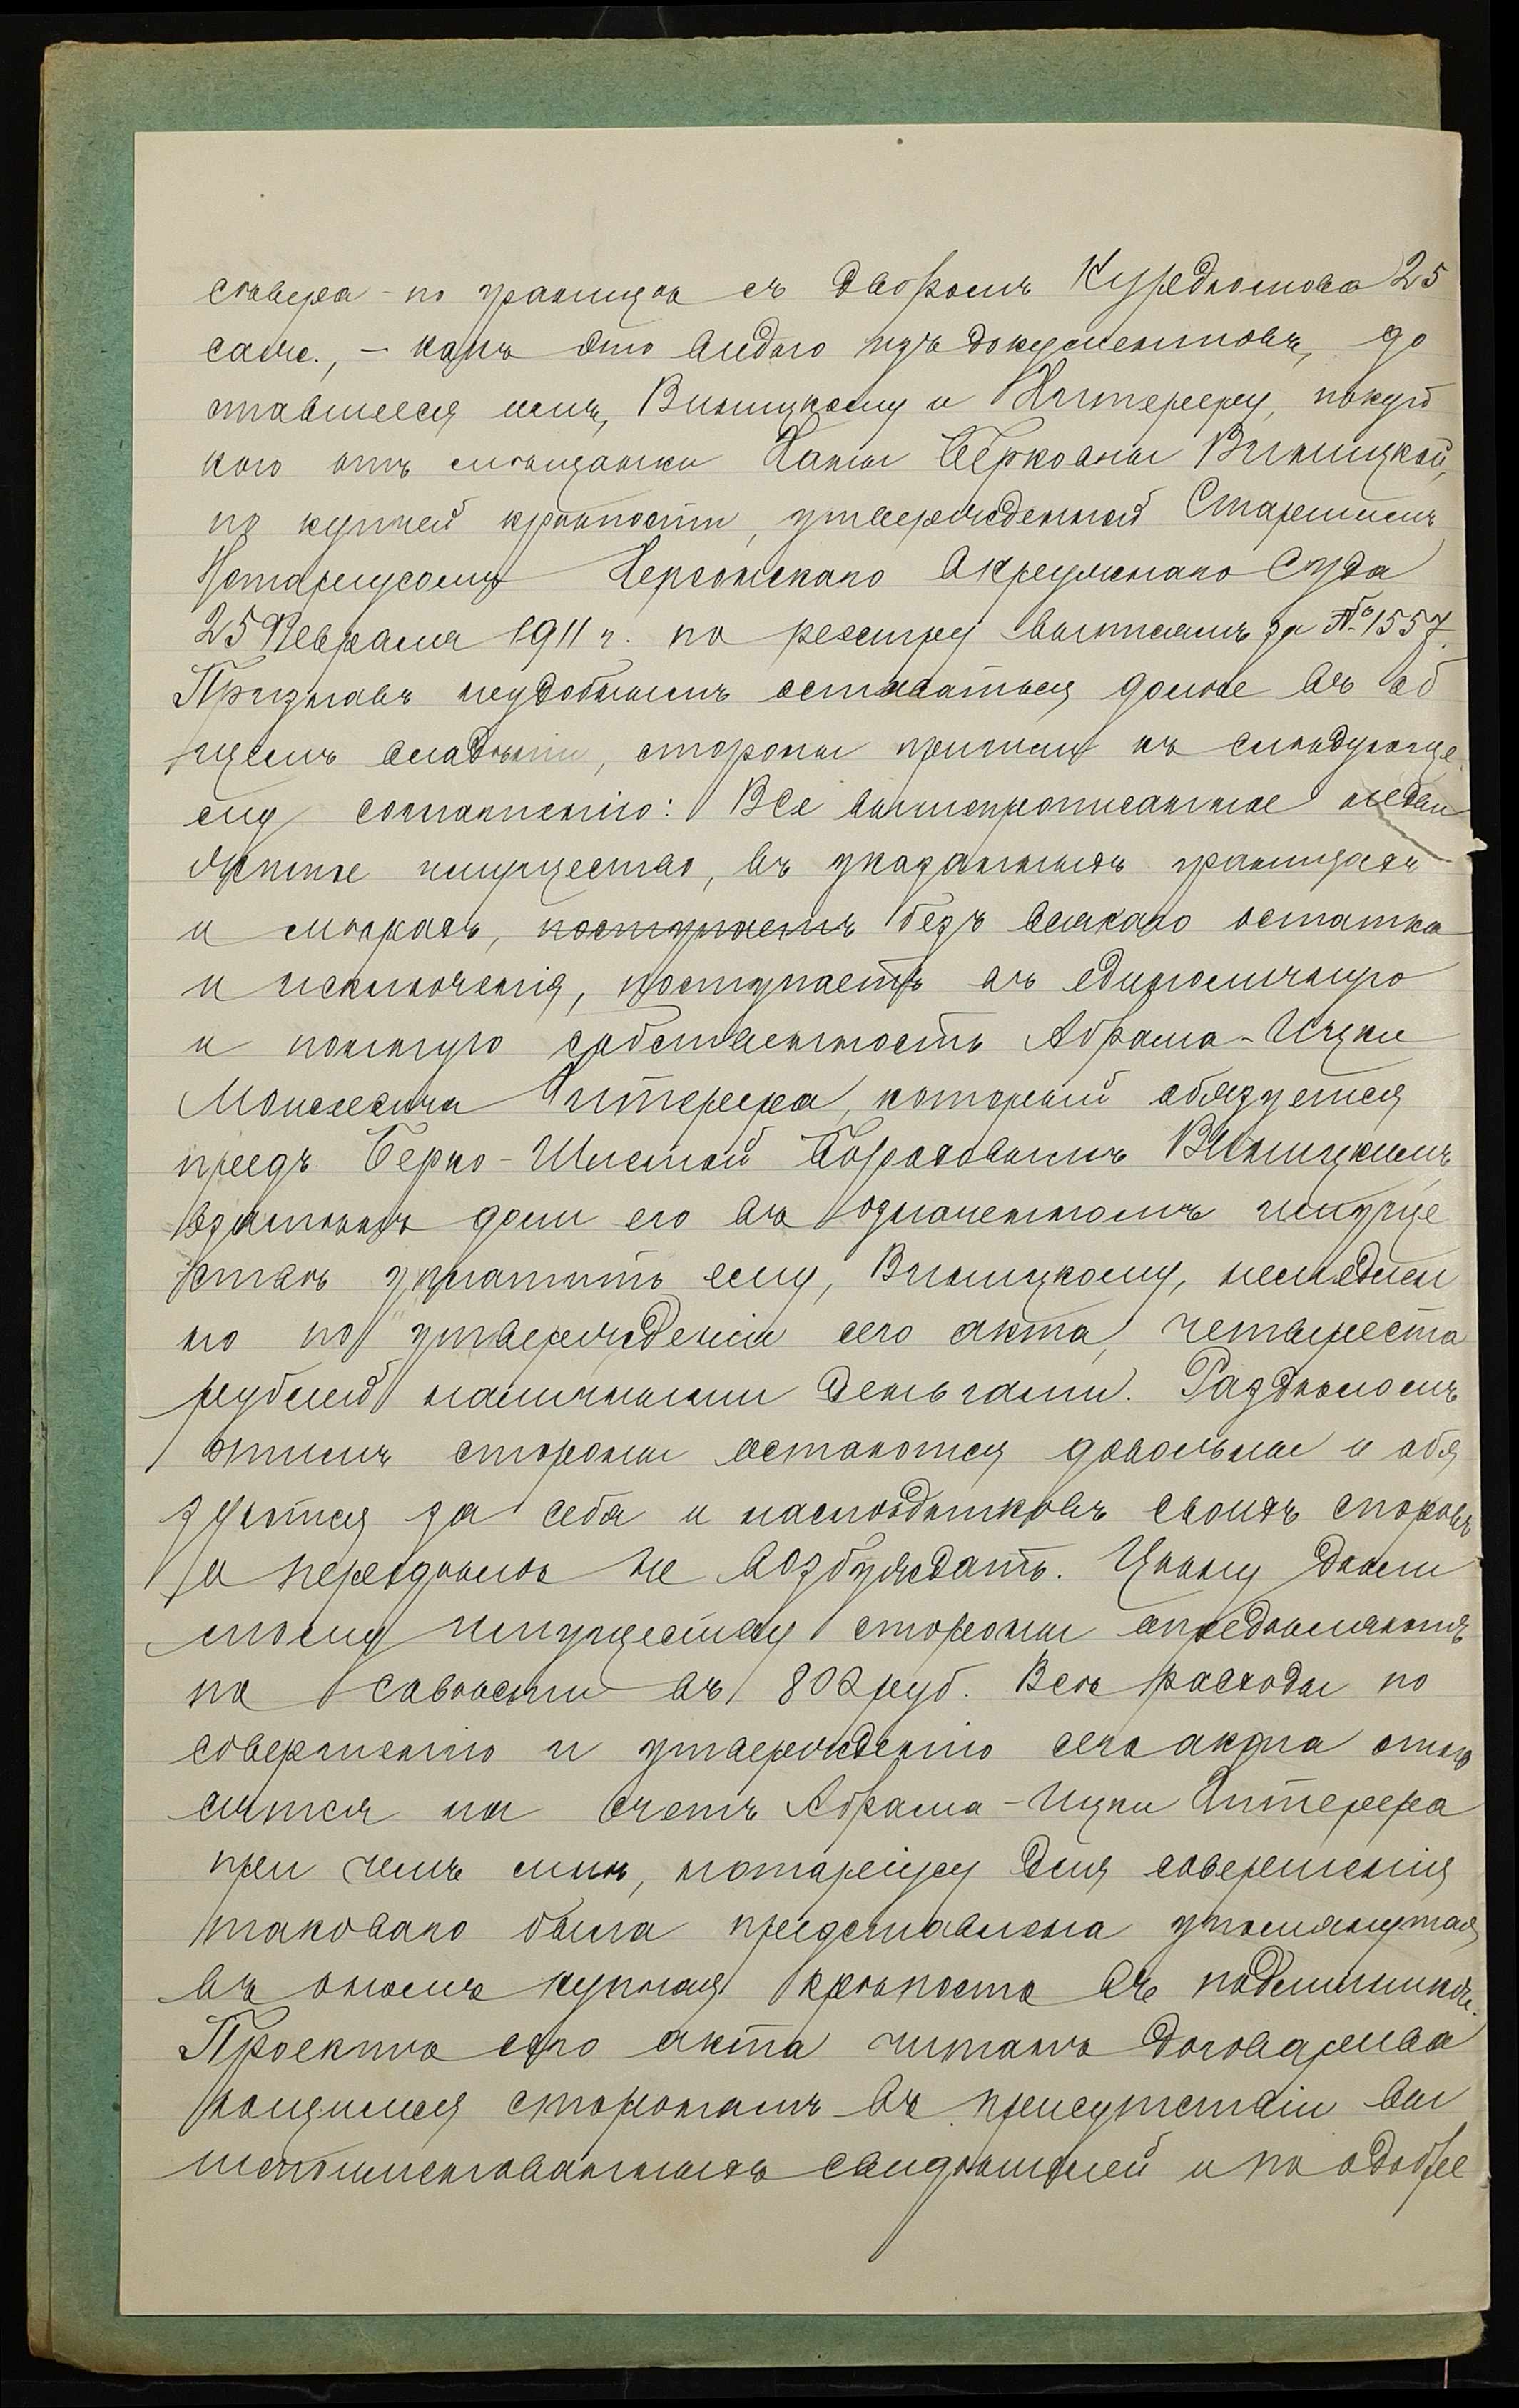 сѣвера - по границѣ съ дворомъ Куредкотова 25
саж., - какъ это видно изъ документовъ, до
ставшееся имъ, Виницкому и Интереру, покуп
кою отъ мѣщанки Ханы Берковны Виницкой,
по купчей крѣпости, утвержденной Старшимъ
Нотаріусомъ Херсонскаго Окружнаго Суда
25 Февраля 1911 г. по реестру выписямъ за № 1557.
Признавъ неудобнымъ оставаться долѣе въ об
щемъ владѣніи, стороны пришли къ слѣдующе
му соглашенію: Все вышепрописанное недви
жимое имущество, въ указанныхъ границахъ
и мѣрахъ, поступаетъ безъ всякаго остатка
и исключенія, поступаетъ въ единоличную
и полную собственность Абрама-Ицки
Моисеевича Интерера, который обязуется
предъ Берко-Шиемой Бороховымъ Виницкимъ,
взамѣнъ доли его въ означенномъ имуще
ствѣ уплатить ему, Виницкому, немедлен
но по утвержденіи сего акта, четыреста
рублей наличными деньгами. Раздѣломъ
этимъ стороны остаются довольны и обя
зуются за себя и наслѣдниковъ своихъ споровъ
и передѣловъ не возбуждать. Цѣну дѣли
мому имуществу стороны опредѣляютъ
по совѣсти въ 802 руб. Всѣ расходы по
совершенію и утвержденію сего акта отно
сятся на счетъ Абрама-Ицки Интерера
при чемъ мнѣ, нотаріусу для совершенія
таковаго была представлена упомянутая
въ ономъ купчая крѣпость въ подлинникѣ.
Проектъ сего акта читанъ договарива
ющимся сторонамъ въ присутствіи вы
шепоименованныхъ свидѣтелей и по одобре